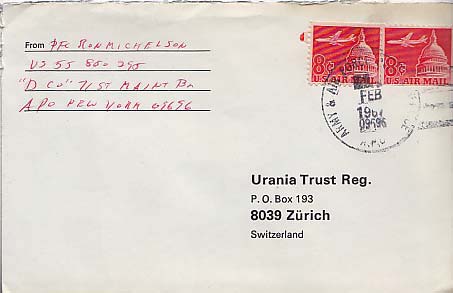 From PFC RON MICHELSON
US 55 860 295
"D CO" 71ST MAINT BN
APO NEW YORK 09696
8¢ 8¢
U.S. AIR MAIL U.S. AIR MAIL
ARMY & AIR
FEB
1967
09696
A.P.O
Urania Trust Reg.
P. O. Box 193
8039 Zürich
Switzerland